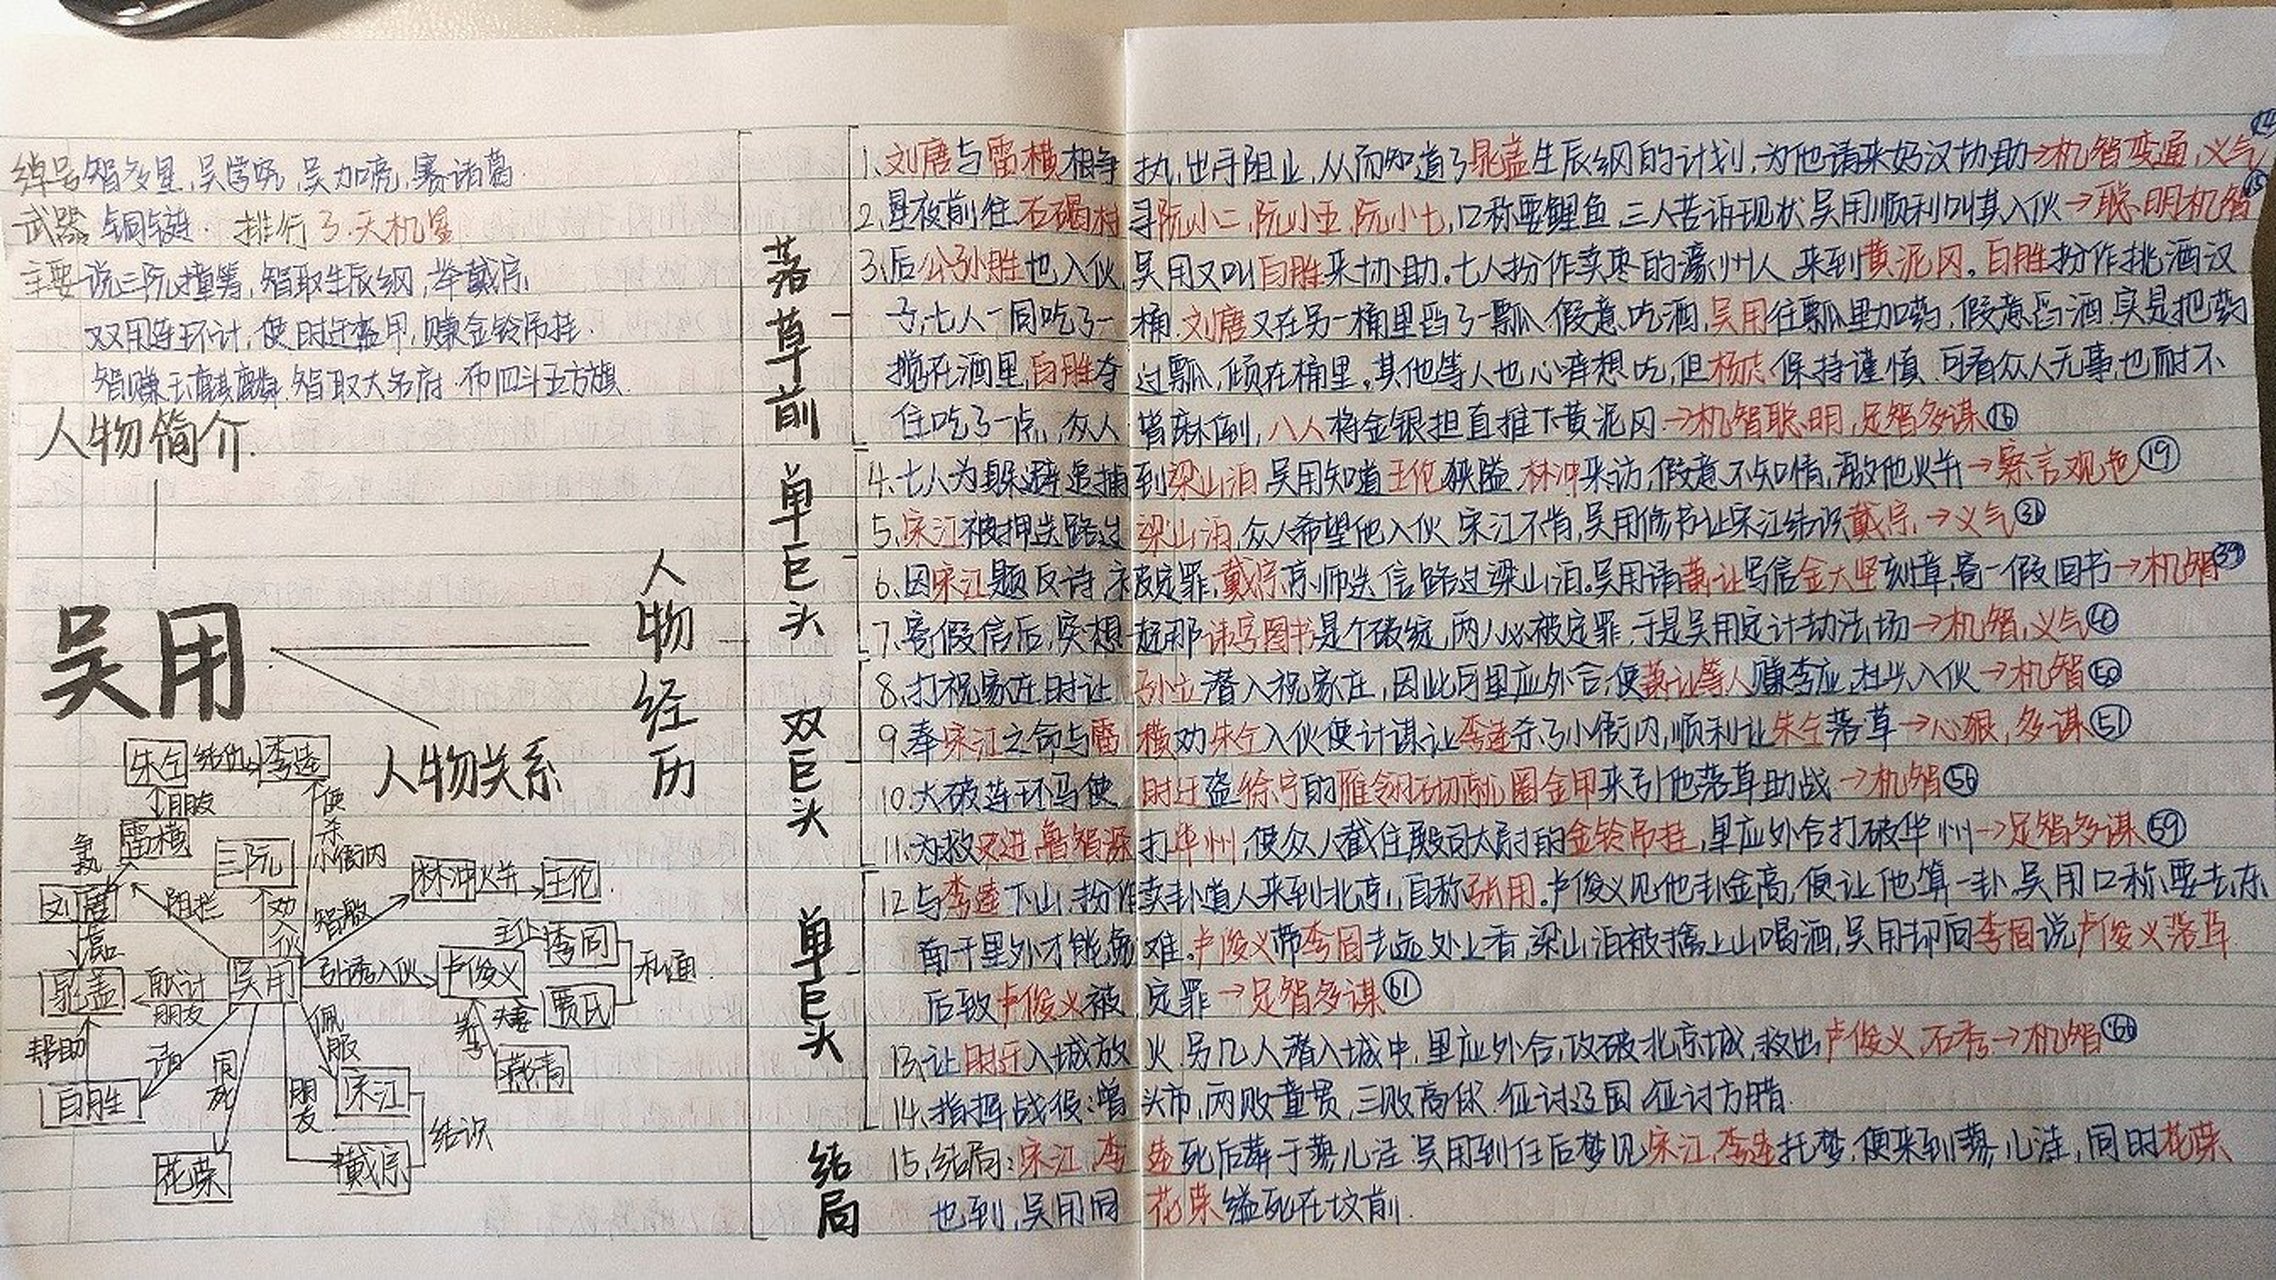 绰号 智多星,吴学究,吴加亮,赛诸葛.
武器 铜链. 排行 3.天机星
主要 说三阮撞筹,智取生辰纲,举戴宗
双用连环计,使时迁盗甲,赚金铃吊挂.
智赚玉麒麟.智取大名府.布四斗五方旗.
人物简介
吴用
人物关系
人物经历
朱仝 结仇 李逵
朋友
雷横
争执
刘唐
阻拦
三阮
劝入伙
使杀小衙内
智激
林冲 火并 王伦
晁盖
献计
朋友
吴用
引诱入伙
卢俊义
主仆
李固
夫妻
贾氏
私通
燕青
帮助
白胜
请
同死
花荣
佩服
宋江
朋友
戴宗
结识
落草前
1.刘唐与雷横相争执,出手阻止,从而知道了晁盖生辰纲的计划,为他请来好汉协助→机智变通,义气 14
2.星夜前往石碣村寻阮小二,阮小五,阮小七,口称要鲤鱼,三人苦诉现状吴用顺利叫其入伙→聪明机智 15
3.后公孙胜也入伙,吴用又叫白胜来协助.七人扮作卖枣的濠州人,来到黄泥冈。白胜扮作挑酒汉
子,七人一同吃了一桶.刘唐又在另一桶里舀了一瓢,假意吃酒,吴用往瓢里加药,假意舀酒,实是把药
搅在酒里,白胜夺过瓢,倾在桶里。其他等人也心痒想吃,但杨志保持谨慎.可看众人无事,也耐不
住吃了一点,众人皆麻倒,八人将金银担直推下黄泥冈→机智聪明,足智多谋⑯
单巨头
4.七人为躲避追捕到梁山泊 吴用知道王伦狭隘.林冲来访,假意不知情,激他火并→察言观色⑲
5.宋江被押送路过梁山泊,众人希望他入伙 宋江不肯,吴用修书让宋江结识戴宗.→义气㊱
6.因宋江题反诗,被定罪,戴宗京师送信路过梁山泊。吴用请萧让写信金大坚刻章,寄一假回书→机智㊴
7.寄假信后,突想起那讳字图书是个破绽,两人必被定罪,于是吴用定计劫法场→机智,义气㊵
双巨头
8.打祝家庄时让孙立潜入祝家庄,因此可里应外合,使萧让等人赚李应,杜兴入伙→机智㊿
9.奉宋江之命与雷横劝朱仝入伙使计谋让李逵杀了小衙内,顺利让朱仝落草→心狠,多谋 51
10.大破连环马使时迁盗徐宁的雁翎砌就圈金甲来引他落草助战→机智 56
11.为救史进,鲁智深打华州,使众人截住殿司太尉的金铃吊挂,里应外合打破华州→足智多谋 59
单巨头
12.与李逵下山.扮作卖卦道人来到北京,自称张用.卢俊义见他卦金高,便让他算一卦.吴用口称要去东
南千里外才能免难.卢俊义带李固去远处上香,梁山泊被擒上山喝酒,吴用却向李固说卢俊义落草
后致卢俊义被定罪→足智多谋 61
13.让时迁入城放火.另几人潜入城中,里应外合,攻破北京城,救出卢俊义,石秀→机智 66
14.指挥战役:曾头市,两败童贯,三败高俅.征讨辽国.征讨方腊.
结局
15.结局:宋江,李逵死后葬于蓼儿洼.吴用到任后梦见宋江,李逵托梦.便来到蓼儿洼,同时花荣
也到,吴用同花荣缢死在坟前.